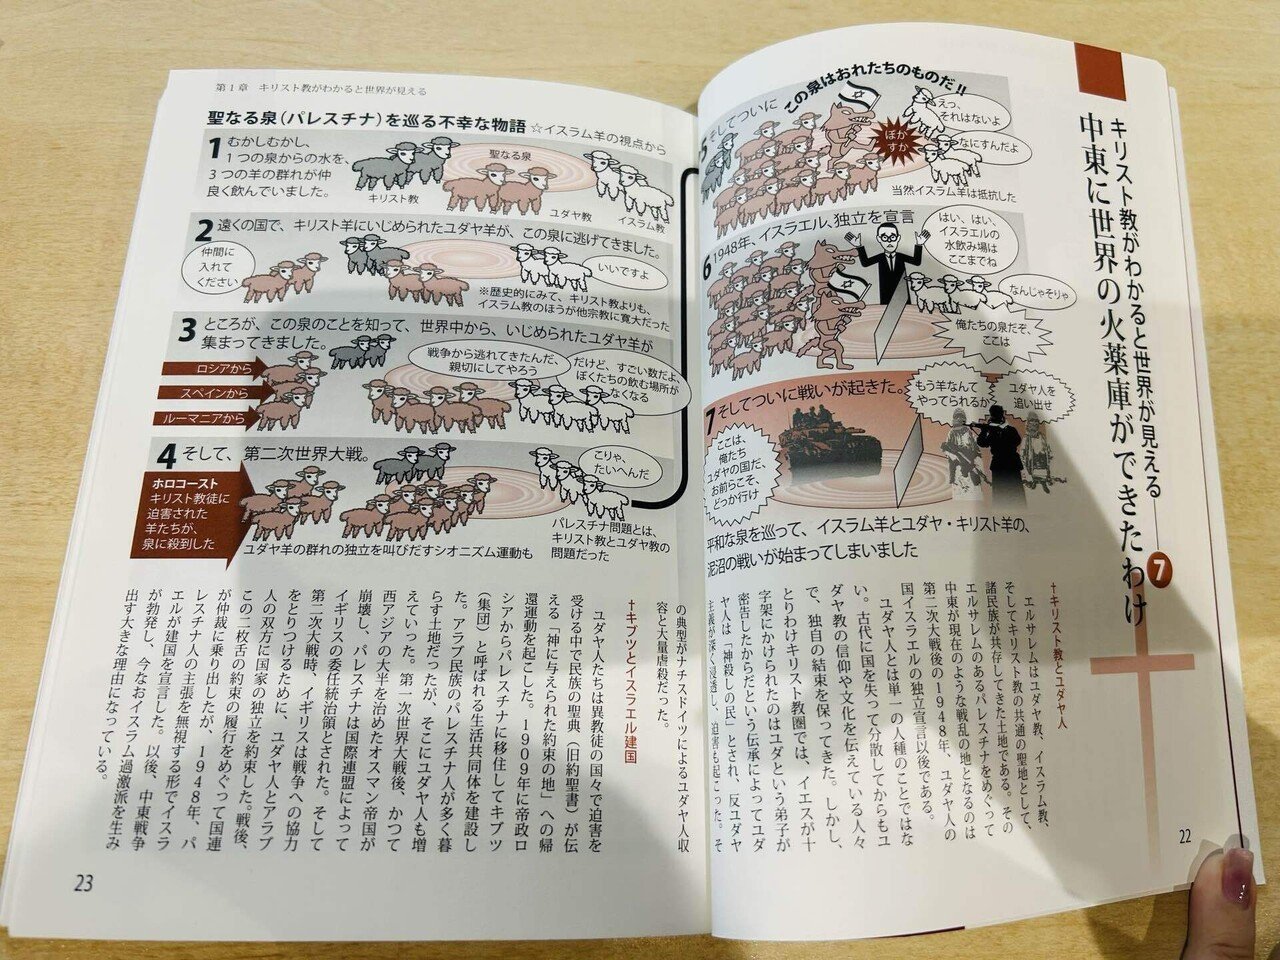 キリスト教がわかると世界が見える──7
中東に世界の火薬庫ができたわけ
第1章 キリスト教がわかると世界が見える
聖なる泉（パレスチナ）を巡る不幸な物語 ☆イスラム羊の視点から
1 むかしむかし、
1つの泉からの水を、
3つの羊の群れが仲
良く飲んでいました。
聖なる泉
キリスト教
ユダヤ教
イスラム教
2 遠くの国で、キリスト羊にいじめられたユダヤ羊が、この泉に逃げてきました。
仲間に
入れて
ください
いいですよ
※歴史的にみて、キリスト教よりも、
イスラム教のほうが他宗教に寛大だった
3 ところが、この泉のことを知って、世界中から、いじめられたユダヤ羊が
集まってきました。
ロシアから
スペインから
ルーマニアから
戦争から逃れてきたんだ、
親切にしてやろう
だけど、すごい数だよ、
ぼくたちの飲む場所が
なくなる
4 そして、第二次世界大戦。
ホロコースト
キリスト教徒に
迫害された
羊たちが、
泉に殺到した
こりゃ、
たいへんだ
ユダヤ羊の群れの独立を叫びだすシオニズム運動も
パレスチナ問題とは、
キリスト教とユダヤ教の
問題だった
5 そしてついに
この泉はおれたちのものだ!!
えっ、
それはないよ
ぽか
すか
なにすんだよ
当然イスラム羊は抵抗した
6 1948年、イスラエル、独立を宣言
はい、はい、
イスラエルの
水飲み場は
ここまでね
なんじゃそりゃ
俺たちの泉だぞ、
ここは
7 そしてついに戦いが起きた。
ここは、
俺たち
ユダヤの国だ、
お前らこそ、
どっか行け
もう羊なんて
やってられるか
ユダヤ人を
追い出せ
平和な泉を巡って、イスラム羊とユダヤ・キリスト羊の、
泥沼の戦いが始まってしまいました
†キリスト教とユダヤ人
エルサレムはユダヤ教、イスラム教、
そしてキリスト教の共通の聖地として、
諸民族が共存してきた土地である。その
エルサレムのあるパレスチナをめぐって
中東が現在のような戦乱の地となるのは
第二次大戦後の1948年、ユダヤ人の
国イスラエルの独立宣言以後である。
ユダヤ人とは単一の人種のことではな
い。古代に国を失って分散してからもユ
ダヤ教の信仰や文化を伝えている人々
で、独自の結束を保ってきた。しかし、
とりわけキリスト教圏では、イエスが十
字架にかけられたのはユダという弟子が
密告したからだという伝承によってユダ
ヤ人は「神殺しの民」とされ、反ユダヤ
主義が深く浸透し、迫害も起こった。そ
22
の典型がナチスドイツによるユダヤ人収
容と大量虐殺だった。
†キブツとイスラエル建国
ユダヤ人たちは異教徒の国々で迫害を
受ける中で民族の聖典（旧約聖書）が伝
える「神に与えられた約束の地」への帰
還運動を起こした。1909年に帝政ロ
シアからパレスチナに移住してキブツ
（集団）と呼ばれる生活共同体を建設し
た。アラブ民族のパレスチナ人が多く暮
らす土地だったが、そこにユダヤ人も増
えていった。第一次世界大戦後、かつて
西アジアの大半を治めたオスマン帝国が
崩壊し、パレスチナは国際連盟によって
イギリスの委任統治領とされた。そして
第二次大戦時、イギリスは戦争への協力
をとりつけるために、ユダヤ人とアラブ
人の双方に国家の独立を約束した。戦後、
この二枚舌の約束の履行をめぐって国連
が仲裁に乗り出したが、1948年、パ
レスチナ人の主張を無視する形でイスラ
エルが建国を宣言した。以後、中東戦争
が勃発し、今なおイスラム過激派を生み
出す大きな理由になっている。
23